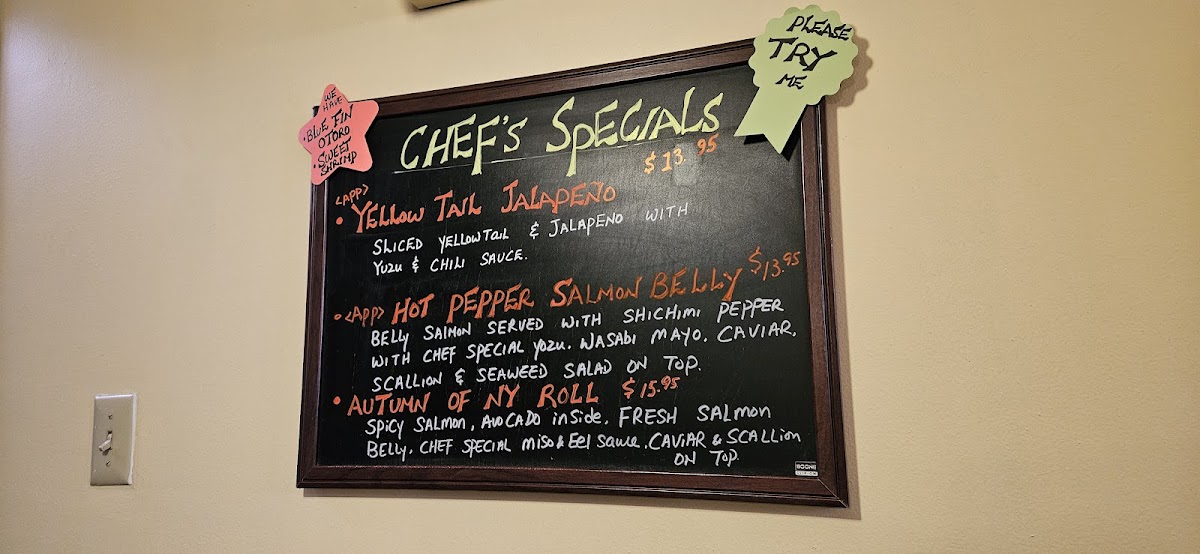 WE
HAVE
• BLUE FIN
OTORO
• SWEET
SHRIMP
PLEASE
TRY
ME
CHEF'S SPECIALS
$13.95
<APP>
• YELLOW TAIL JALAPENO
SLICED YELLOWTAIL & JALAPENO WITH
YUZU & CHILI SAUCE.
• <APP> HOT PEPPER SALMON BELLY $13.95
BELLY SALMON SERVED WITH SHICHIMI PEPPER
WITH CHEF SPECIAL YOZU. WASABI MAYO. CAVIAR.
SCALLION & SEAWEED SALAD ON TOP.
• AUTUMN OF NY ROLL $15.95
SPICY SALMON, AVOCADO inside. FRESH SALMON
BELLY. CHEF SPECIAL miso & Eel sauce. CAVIAR & SCALLION
ON TOP.
BOONE